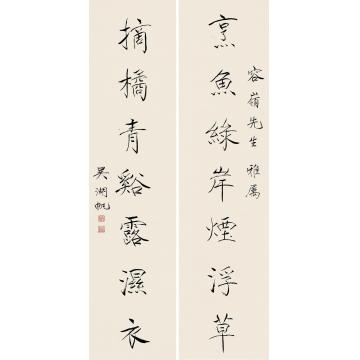 容嶺先生雅屬
烹魚綠岸煙浮草
摘橘青谿露濕衣
吳湖帆